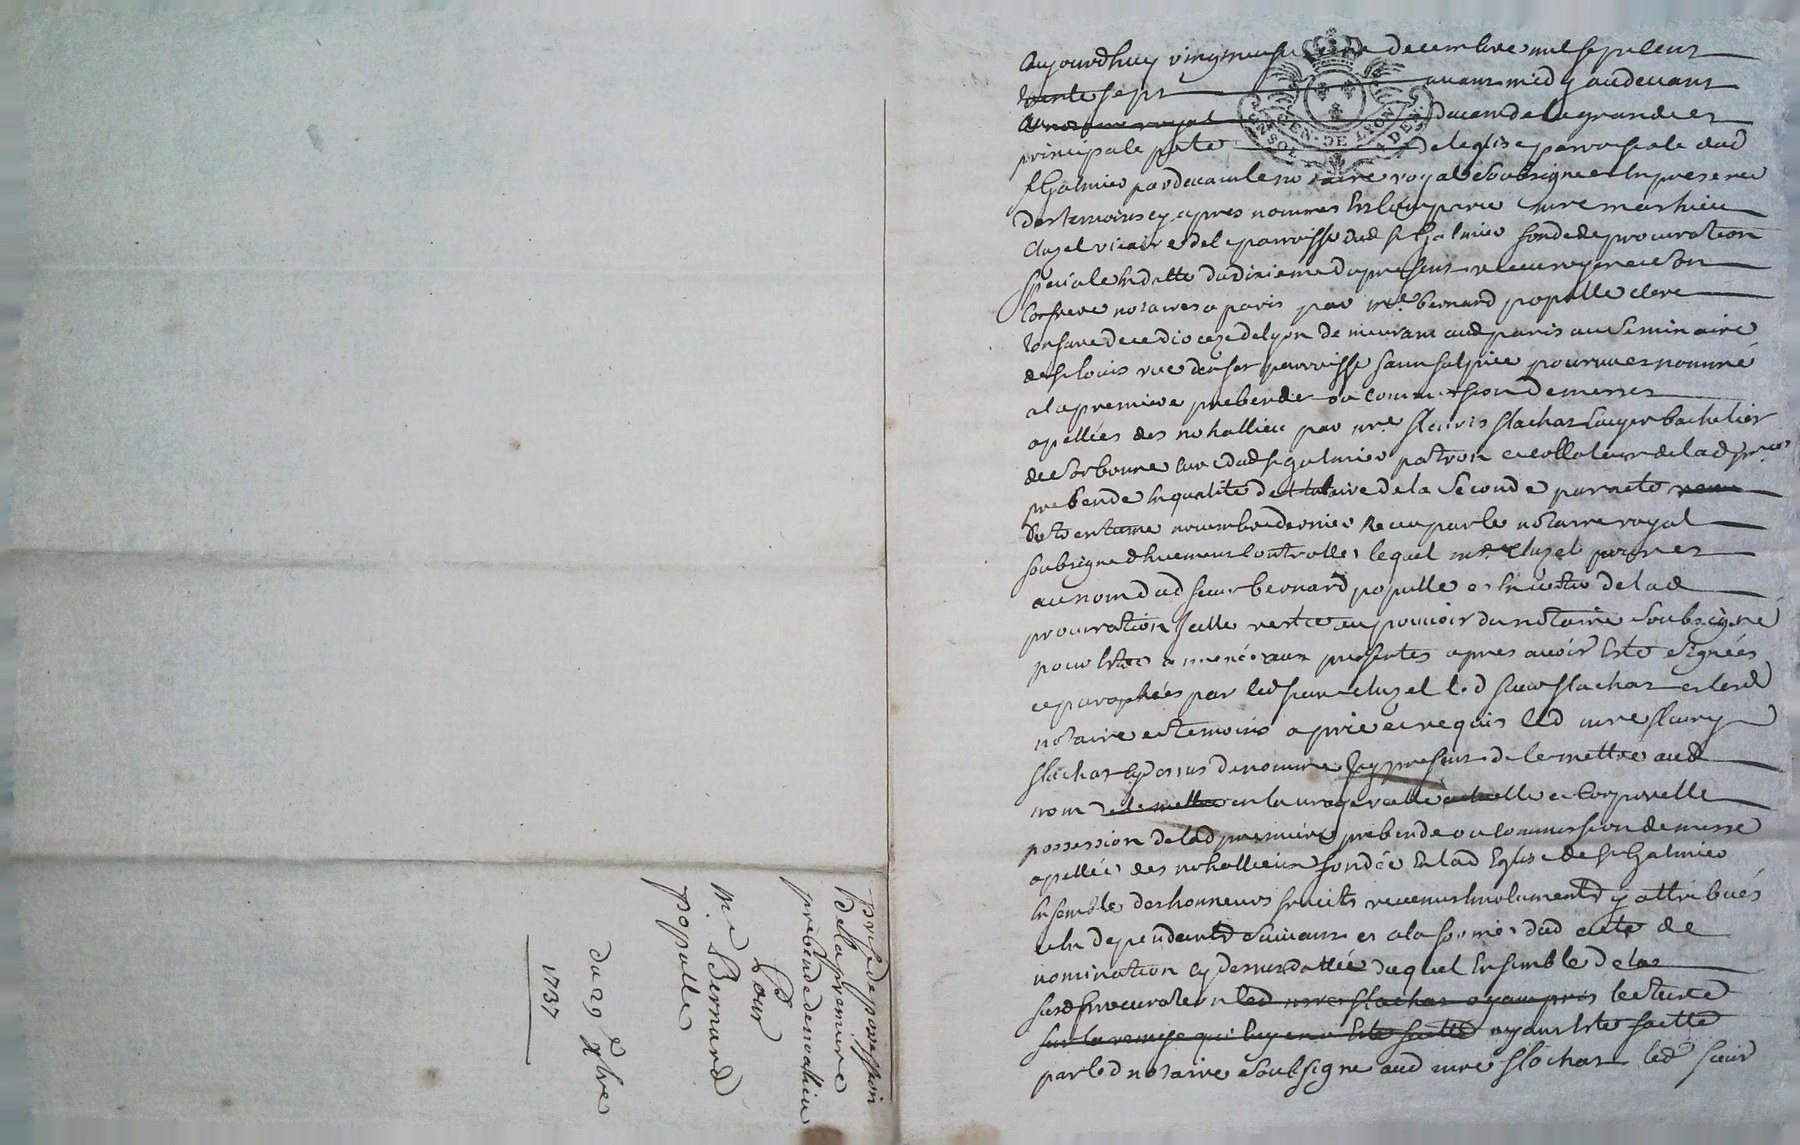 prise de possession
de la premiere
prebende de nohallieu
Pour
mre Bernard
populle
du 29e Xbre
1737
Aujourdhuy vingtneuf decembre mil sept cent
trente sept avant midy audevant
devant de la grande et
principale porte de leglise parroissiale dud
st Galmier pardevant le notaire royal soubsigné et en presence
des temoins cy apres nommes est comparu mre mathieu
cluzel vicaire de la parroisse dud st Galmier fondé de procuration
speciale en datte du dixieme du present receue par et son
confrere notaires a paris par mre bernard populle clerc
tonsuré de ce dioceze de lyon demeurant aud paris au seminaire
de st louis rue denfer parroisse saint sulpice pourvu et nommé
a la premiere prebende ou commission de messes
apellées des nohallieu par mre fleuris flachat ecuyer bachelier
de sorbonne curé dud st galmier patron et collateur de lad
prebende en qualité de titulaire de la seconde par acte
du trentieme novembre dernier receu par le notaire royal
soubsigné duement controllé, lequel mre cluzel pour et
au nom dud sieur bernard populle et en vertu de lad
procuration icelle restée au pouvoir du notaire soubsigné
pour estre annexée aux presentes apres avoir esté signées
et paraphées par led sieur cluzel led sieur flachat et led
notaire et temoins a prié et requis led mre fleury
flachat cy dessus denommé icy present de le mettre aud
nom en la vraye reelle actuelle et corporelle
possession de lad premiere prebende ou commission de messe
apellée des nohallieux fondée en lad Eglise de st Galmier
ensemble des honneurs fruits revenus emolumentd y attribués
et en dependantd suivant et a la forme dud acte de
nomination cy dessus datté duquel ensemble de la
susd procuration led mre flachat ayant pris lecture
sur la remise qui luy en a esté faitte ayant esté faitte
par led notaire soubsigné aud mre flachat led sieur
GEN. DE LYON